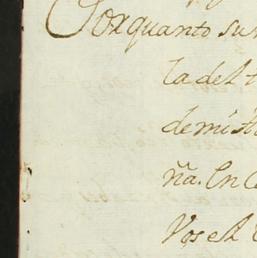 Porquanto su
la del
de mi A
ña. En
Vos el